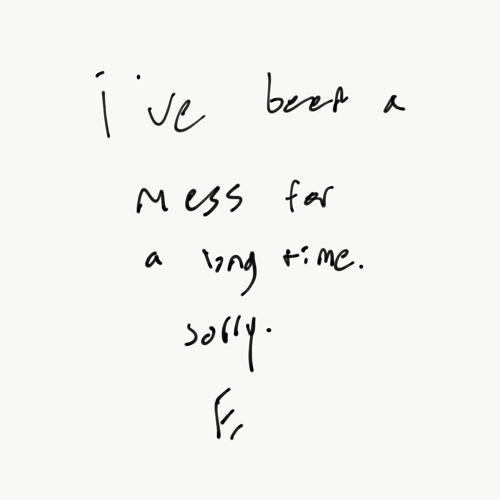 i've been a
mess for
a long time.
sorry.